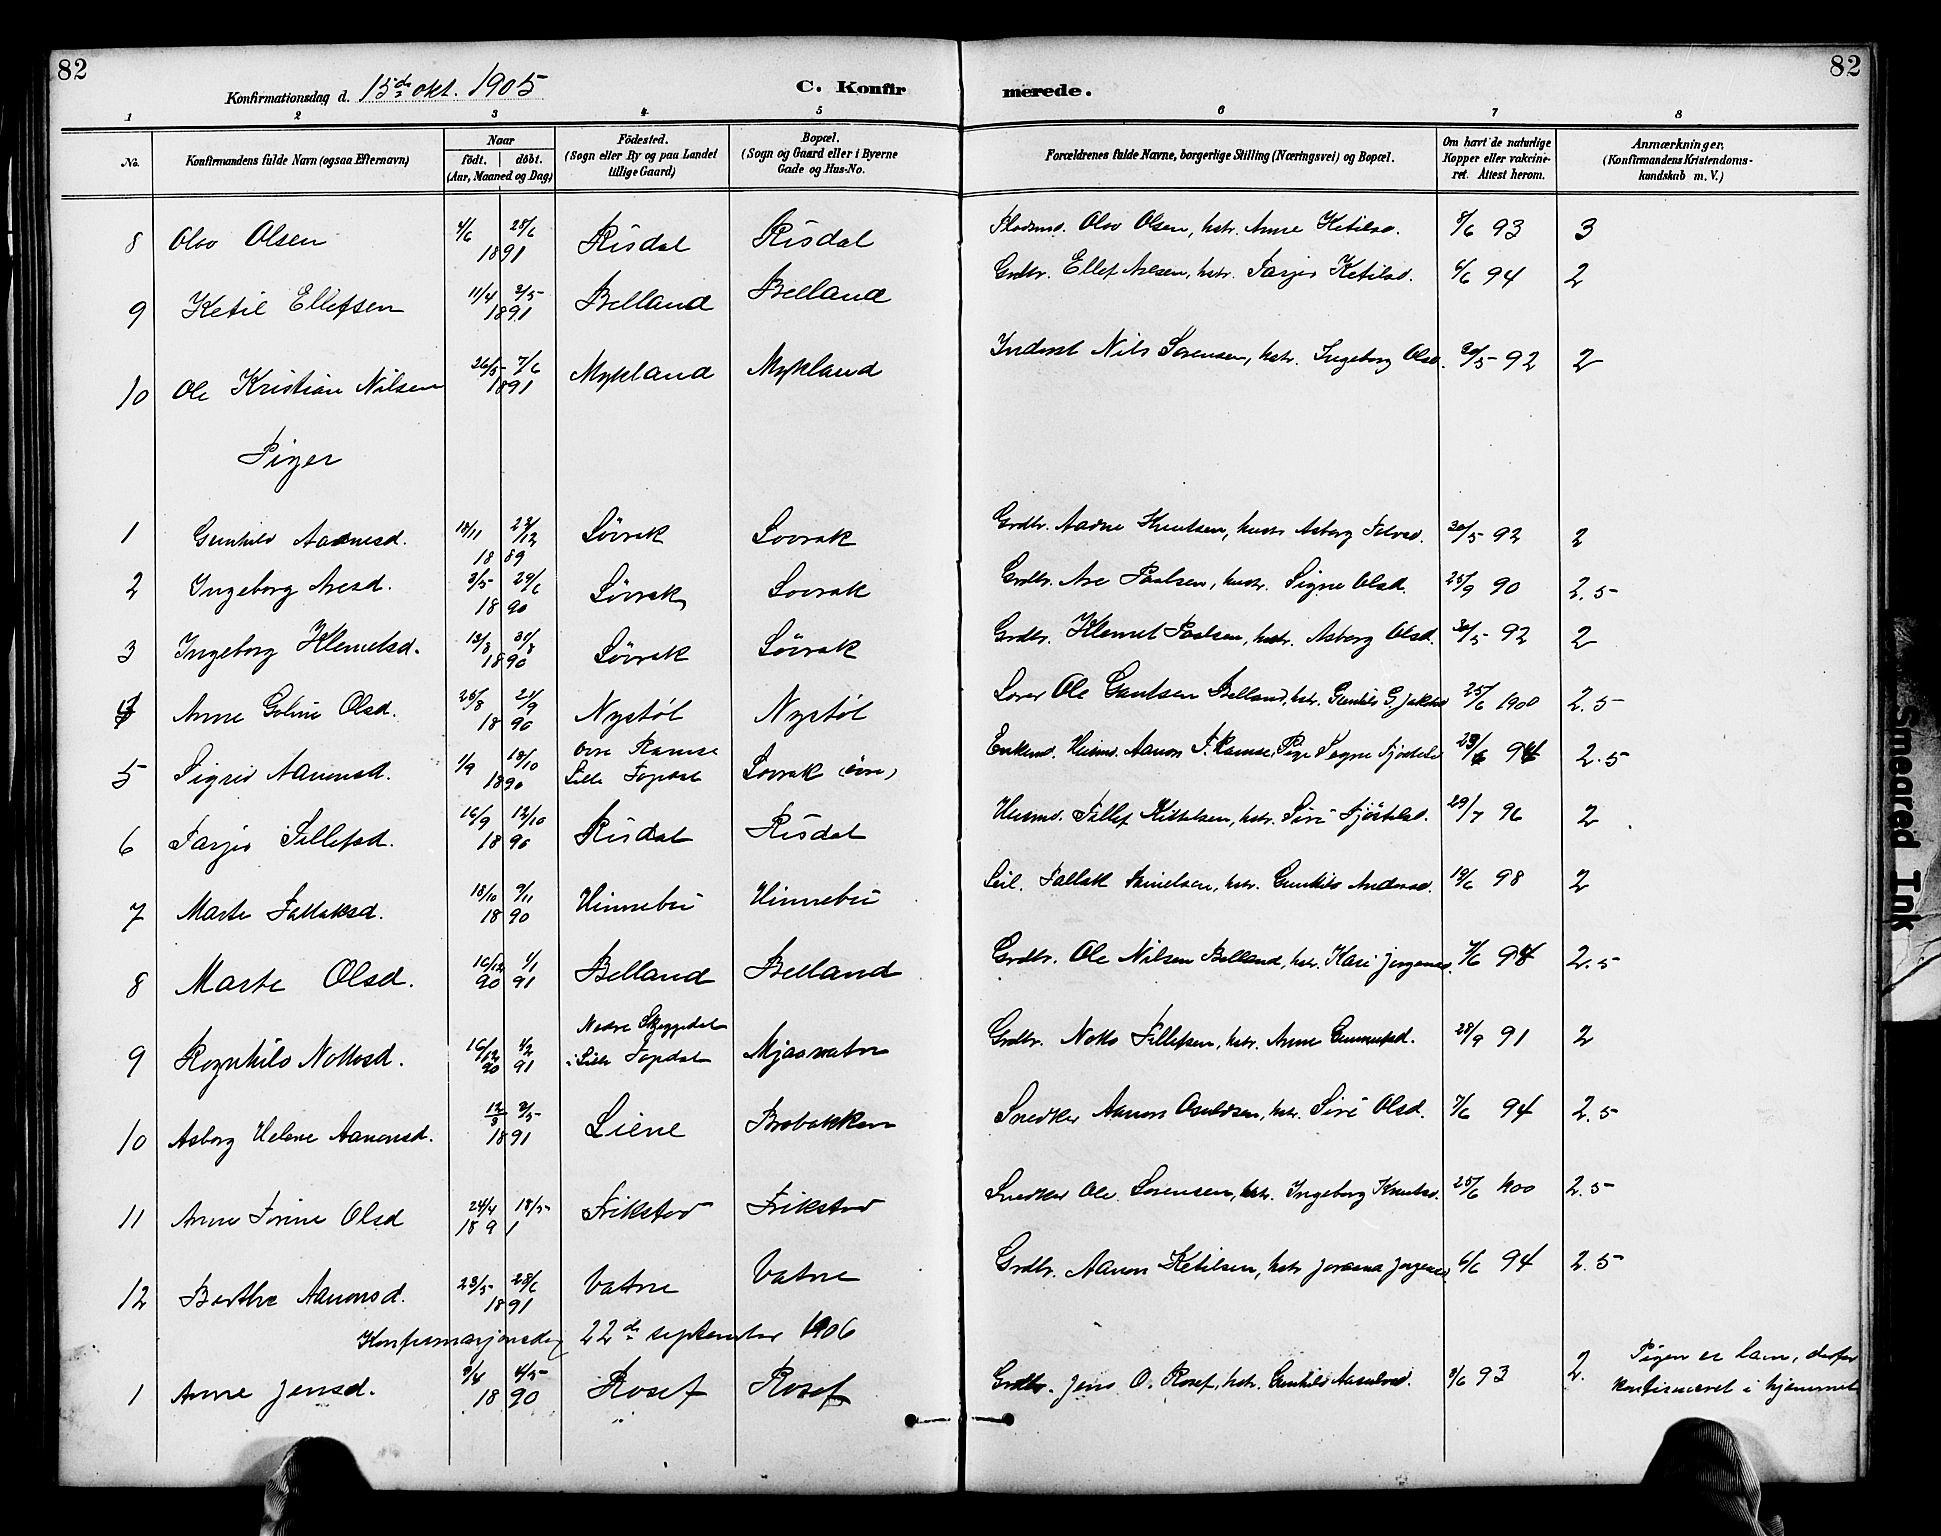 82
Konfirmationsdag d. 15de okt. 1905
C. Konfirmerede.
82
1 2 3 4 5 6 7 8
No.
Konfirmandens fulde Navn (ogsaa Efternavn)
Naar
födt. | döbt.
(Aar, Maaned og Dag)
Födested.
(Sogn eller By og paa Landet tillige Gaard)
Bopæl.
(Sogn og Gaard eller i Byerne Gade og Hus-No.
Forældrenes fulde Navne, borgerlige Stilling (Næringsvei) og Bopæl.
Om havt de naturlige Kopper eller vakcineret. Attest herom.
Anmærkninger.
(Konfirmandens Kristendomskundskab m. V.)
8 Olav Olsen 4/6 28/6 1891 Risdal Risdal Pladsmd. Olav Olsen, hstr. Anne Ketilsd. 8/6 93 3
9 Ketil Ellefsen 11/4 3/5 1891 Belland Belland Grdbr. Ellef Nilsen, hstr. Tarjer Ketilsd. 6/6 94 2
10 Ole Kristian Nilsen 26/5 7/6 1891 Mykland Mykland Inderst Nils Sørensen, hstr. Ingeborg Olsd. 20/5 92 2
Piger
1 Gunhild Aadnesd. 18/11 22/12 1889 Lövrak Lovrak Grdbr. Aadne Knutsen, hustr. Asborg Tolvsd. 30/5 92 2
2 Ingeborg Aresd. 3/5 29/6 1890 Lövrak Lovrak Grdbr. Are Paalsen, hustr. Signe Olsd. 25/9 90 2.5
3 Ingeborg Klemetsd. 13/8 31/8 1890 Lövrak Lövrak Grdbr. Klemet Paalsen, hstr. Asborg Olsd. 30/5 92 2
4 Anne Goline Olsd. 26/8 21/9 1890 Nystöl Nystöl Lærer Ole Gautsen Belland, hstr. Gunhild G. Jakobsd 25/6 1900 2.5
5 Sigrid Aanonsd. 1/9 13/10 1890 övre Ramse Lille Topdal Lovrak (övre) Enkemd. Husmd. Aanon T. Ramse, Pige Signe Fjöstelsd 23/6 94 2.5
6 Tarjer Tellefsd. 16/9 12/10 1890 Risdal Risdal Husmd. Tellef Kittelsen, hstr. Siri Fjöstelsd. 29/7 96 2
7 Marte Tallaksd. 18/10 9/11 1890 Hinnebu Hinnebu Leil. Tallak Knudsen, hstr. Gunhild Andersd. 19/6 98 2
8 Marte Olsd. 16/12 90 1/1 91 Belland Belland Grdbr. Ole Nilsen Belland, hstr. Kari Jørgensd. 7/6 94 2.5
9 Ragnhild Nottosd. 16/12 90 1/2 91 Nedre Skeggedal i Lille Topdal Mjaavatn Grdbr. Notto Tellefsen, hstr. Anne Gunnufsd. 28/9 91 2
10 Asborg Helene Aanonsd. 12/3 3/5 1891 Liene Brobakken Snedker Aanon Osuldsen, hstr. Siri Olsd. 7/6 94 2.5
11 Anne Torine Olsd 24/4 18/5 1891 Frikstad Frikstad Snedker Ole Sørensen, hstr. Ingeborg Knutsd. 25/6 1900 2.5
12 Berthe Aanonsd. 23/5 28/6 1891 Vatne Vatne Grdbr. Aanon Ketilsen, hstr Joraand Jørgensd 6/6 94 2.5
Konfirmasjonsdag 22de september 1906
1 Anne Jensd. 9/4 4/5 1890 Rosef Rosef Grdbr. Jens O. Rosef, hstr. Gunhild Aasulvsd. 8/6 93 2. Pigen er lam, derfor
konfirmeret i hjemmet
Smeared Ink